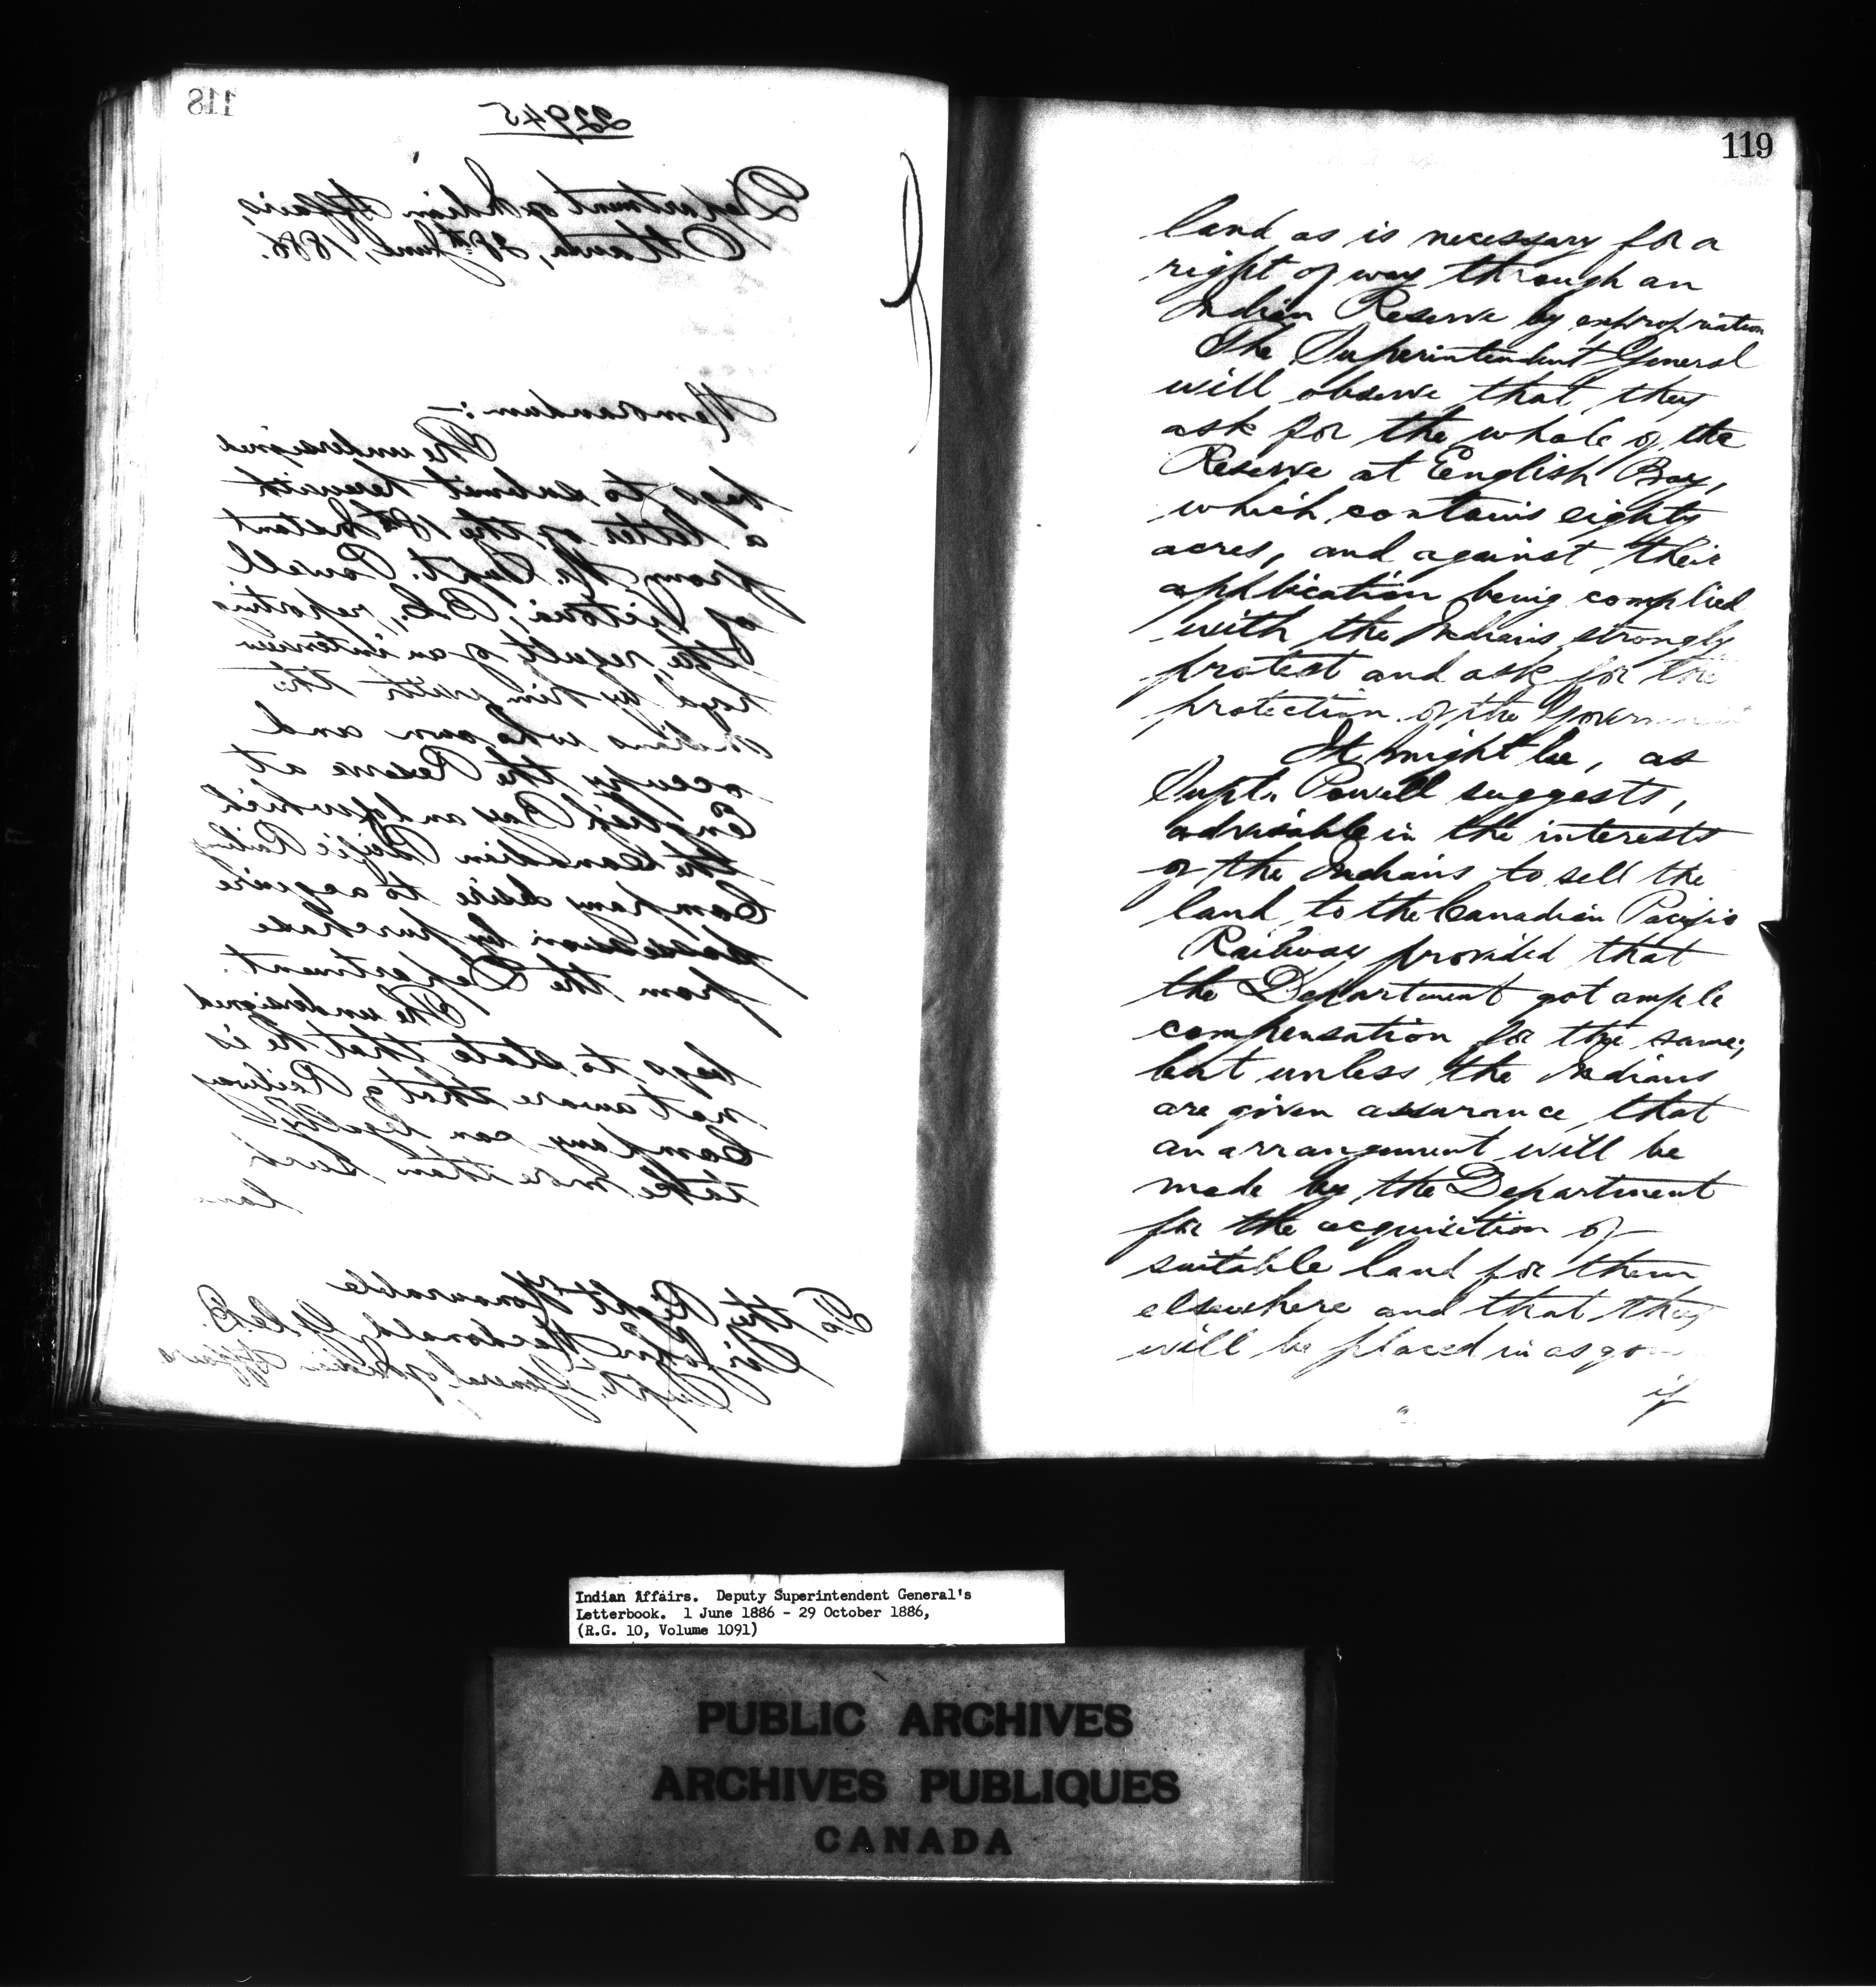 118
22945
Department of Indian Affairs,
Ottawa, 28th June, 1886.
Memorandum:-
The undersigned
begs to submit herewith
a letter of the 18th Instant
from Mr. Supt. Powell
of Victoria, B.C., reporting
the result of an interview
had by him with the
Indians who own and
occupy the Reserve at
English Bay and of which
the Canadian Pacific Railway
Company desire to acquire
possession by purchase
from the Department.
The undersigned
begs to state that he is
not aware that a Railway
Company can legally
take more than such
land
To the Right Honourable
Sir John Macdonald, G.C.B.
Supt. General of Indian Affairs
119
land as is necessary for a
right of way through an
Indian Reserve by expropriation
The Superintendent General
will observe that they
ask for the whole of the
Reserve at English Bay,
which contains eighty
acres, and against their
application being complied
with the Indians strongly
protest and ask for the
protection of the Government
It might be, as
Supt. Powell suggests,
advisable in the interests
of the Indians to sell the
land to the Canadian Pacific
Railway provided that
the Department got ample
compensation for the same;
but unless the Indians
are given assurance that
an arrangement will be
made by the Department
for the acquisition of
suitable land for them
elsewhere and that they
will be placed in as good
if
Indian Affairs. Deputy Superintendent General's
Letterbook. 1 June 1886 - 29 October 1886,
(R.G. 10, Volume 1091)
PUBLIC ARCHIVES
ARCHIVES PUBLIQUES
CANADA